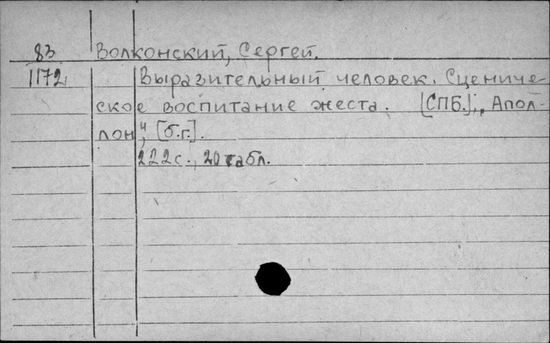 83 Волконский, Сергей.
1172 Выразительный человек. Сцениче-
ское воспитание жеста. [СПБ.], „Апол-
лон“, [б.г.].
222с., 20 табл.